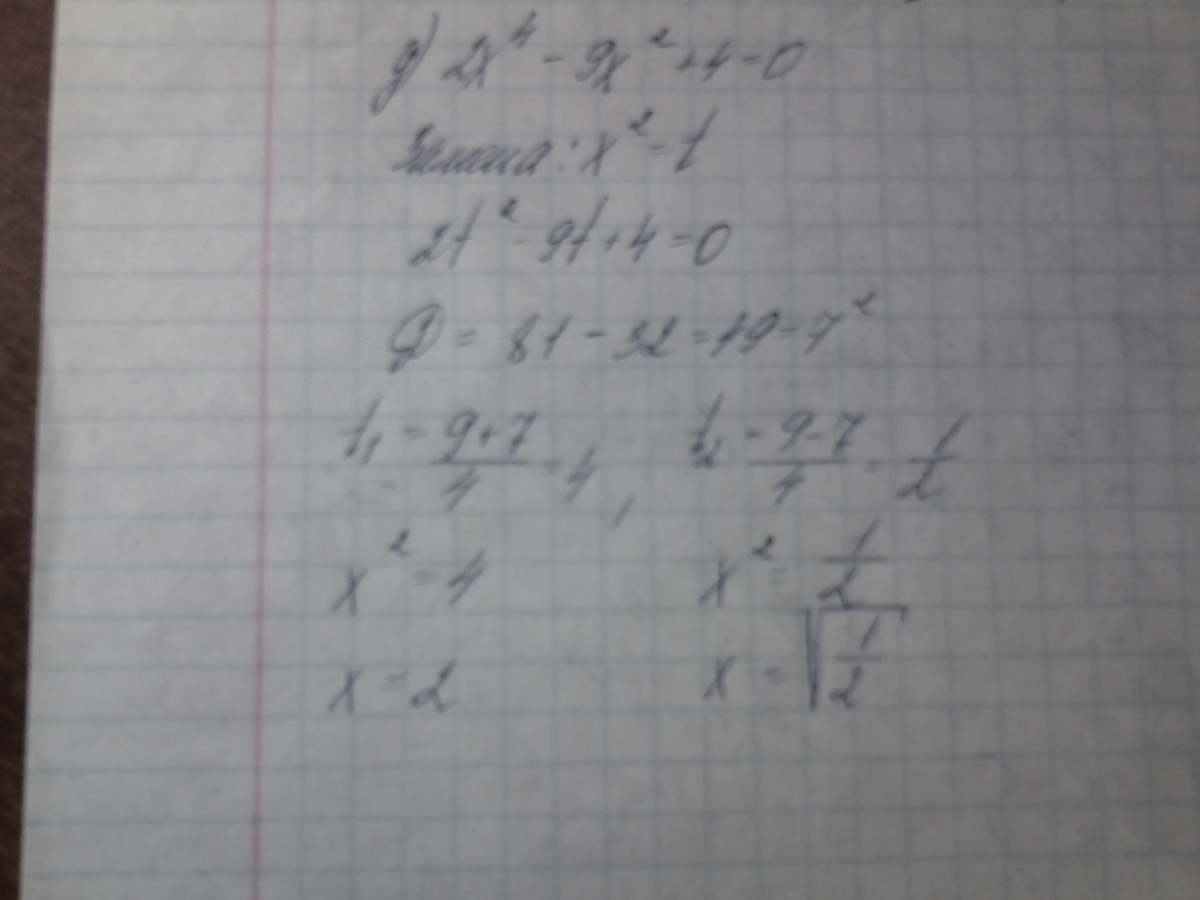 д) 2x⁴ - 9x² + 4 = 0
Замена: x² = t
2t² - 9t + 4 = 0
D = 81 - 32 = 49 = 7²
t₁ = (9+7)/4 = 4, t₂ = (9-7)/4 = 1/2
x² = 4 x² = 1/2
x = 2 x = √(1/2)